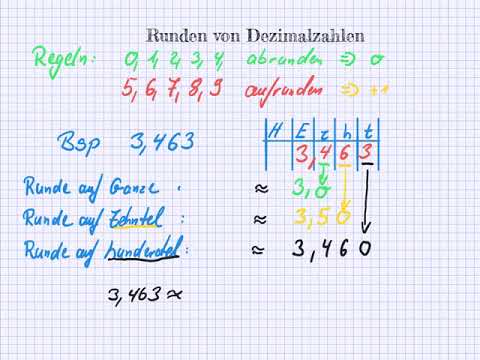 Runden von Dezimalzahlen
Regeln: 0, 1, 2, 3, 4, abrunden => 0
5, 6, 7, 8, 9 aufrunden => +1
Bsp 3,463
H E z h t
3, 4 6 3
Runde auf Ganze : ≈ 3,0
Runde auf Zehntel : ≈ 3,50
Runde auf hunderstel : ≈ 3,460
3,463 ≈